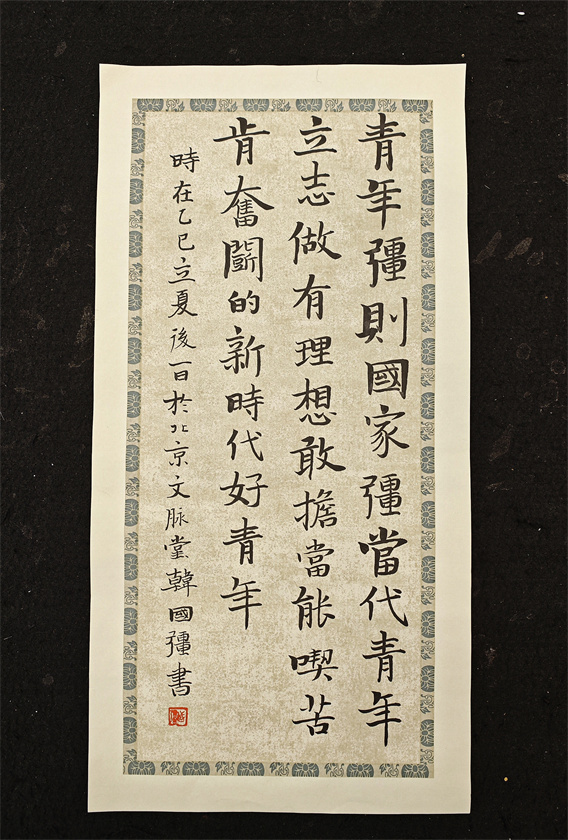 青年彊則國家彊當代青年
立志做有理想敢擔當能喫苦
肯奮鬭的新時代好青年
時在乙巳立夏後一日於北京文脉堂韓國彊書